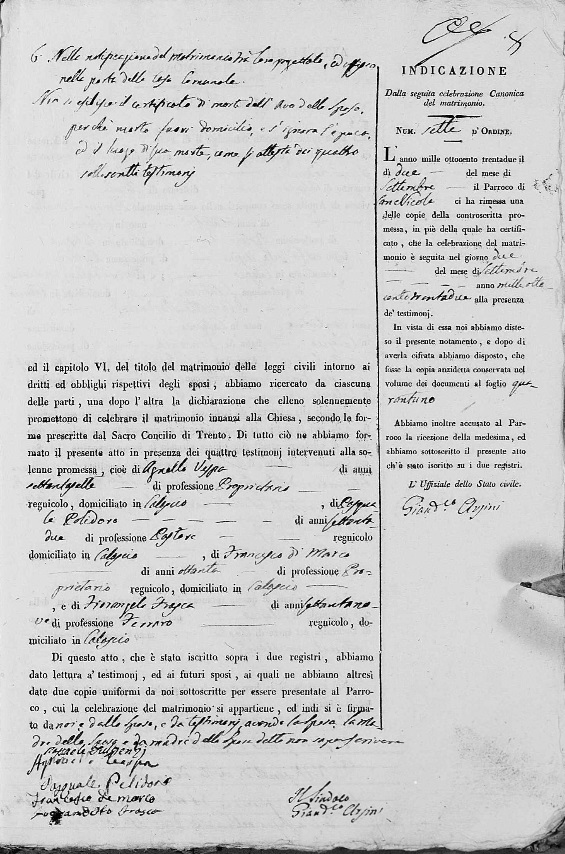 6. Nelle notificazione del matrimonio tra loro progettato, ed affisso
nelle porte della Casa Comunale.
Non si esibisce il certificato di morte dell' Avo dello Sposo,
perché morto fuori domicilio, e s' ignora l'epoca,
ed il luogo di sua morte, come si attesta dai quattro
sottoscritti testimonj
ed il capitolo VI. del titolo del matrimonio delle leggi civili intorno ai
dritti ed obblighi rispettivi degli sposi, abbiamo ricercato da ciascuna
delle parti, una dopo l'altra la dichiarazione che elleno solennemente
promettono di celebrare il matrimonio innanzi alla Chiesa, secondo le for-
me prescritte dal Sacro Concilio di Trento. Di tutto ciò ne abbiamo for-
mato il presente atto in presenza dei quattro testimonj intervenuti alla so-
lenne promessa, cioè di Agnello Vespa di anni
settantasette di professione Proprietario
regnicolo, domiciliato in Calascio, di Pasqua
le Polidoro di anni settanta
due di professione Pastore regnicolo
domiciliato in Calascio, di Francesco di Marco
di anni ottanta di professione Pro-
prietario regnicolo, domiciliato in Calascio
, e di Fiorangelo Frasca di anni settantano-
ve di professione Ferraro regnicolo, do-
miciliato in Calascio
Di questo atto, che è stato iscritto sopra i due registri, abbiamo
dato lettura a' testimonj, ed ai futuri sposi, ai quali ne abbiamo altresì
dato due copie uniformi da noi sottoscritte per essere presentate al Parro-
co, cui la celebrazione del matrimonio si appartiene, ed indi si è firma-
to da noi e dallo Sposo, e da testimonj, avendo la Sposa la ma
dre dello Sposo e la madre della Sposa detto non saper scrivere
Pasquale Polidoro
Francesco de Marco
Il Sindaco
Giand.co Arsini
INDICAZIONE
Dalla seguita celebrazione Canonica
del matrimonio.
Num. sette d'Ordine.
L'anno mille ottocento trentadue il
dì due del mese di
Settembre il Parroco di
San Nicola ci ha rimessa una
delle copie della controscritta pro-
messa, in piè della quale ha certifi-
cato, che la celebrazione del matri-
monio è seguita nel giorno due
del mese di Settembre
anno mille otto
cento trentadue alla presenza
de' testimonj.
In vista di essa noi abbiamo diste-
so il presente notamento, e dopo di
averla cifrata abbiamo disposto, che
fusse la copia anzidetta conservata nel
volume dei documenti al foglio qua
rantuno
Abbiamo inoltre accusato al Par-
roco la ricezione della medesima, ed
abbiamo sottoscritto il presente atto
ch'è stato iscritto su i due registri.
L' Uffiziale dello Stato civile.
Giand.co Arsini